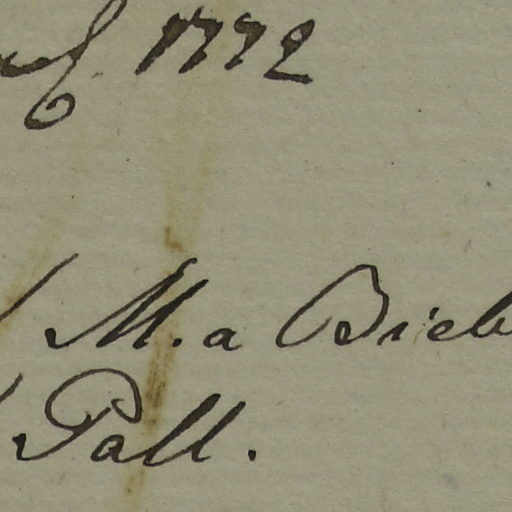 1772
M. a Bieb
Pall.